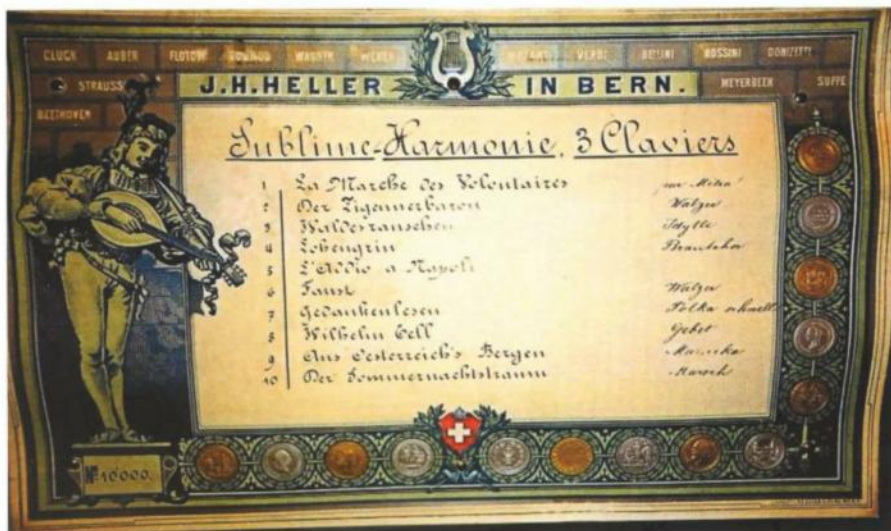 GLUCK AUBER FLOTOW GOUNOD WAGNER WEBER MOZART VERDI BELLINI ROSSINI DONIZETTI
STRAUSS MEYERBEER SUPPE
BEETHOVEN
J.H.HELLER IN BERN.
Sublime-Harmonie, 3 Claviers
1 La Marche des Volontaires par Métra
2 Der Zigeunerbaron Walzer
3 Waldesrauschen Idylle
4 Lohengrin Brautchor
5 L'Addio a Napoli
6 Faust Walzer
7 Gedankenlesen Polka schnell
8 Wilhelm Tell Gebet
9 Aus Oesterreich's Bergen Mazurka
10 Der Sommernachtstraum Marsch
No 10'000.